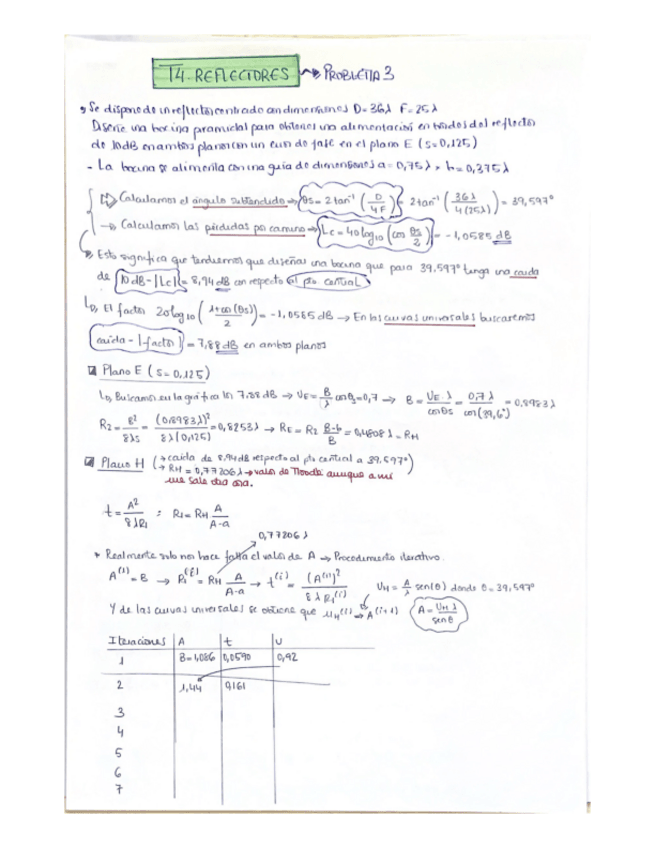 T4. REFLECTORES → PROBLEMA 3
Se dispone de un reflector centrado con dimensiones D=36λ F=25λ
Diseñe una bocina piramidal para obtener una alimentación en bordes del reflector
de 10dB en ambos planos con un error de fase en el plano E (s=0,125)
- La bocina se alimenta con una guía de dimensiones a=0,75λ × b=0,375λ
Calculamos el ángulo subtendido → θs = 2tan⁻¹ (D/4F) = 2tan⁻¹ (36λ/4(25λ)) = 39,597°
→ Calculamos las pérdidas por camino → Lc = 40log₁₀ (cos θs/2) = -1,0585 dB
Esto significa que tendremos que diseñar una bocina que para 39,597° tenga una caída
de 10dB - |Lc| = 8,94 dB con respecto al pto. central
El factor 20log₁₀ (1+cos(θs)/2) = -1,0585dB → En las curvas universales buscaremos
caída - |factor| = 7,88 dB en ambos planos
Plano E (s=0,125)
Buscamos en la gráfica los 7.88 dB → UE = B/λ cosθs = 0,7 → B = UE·λ/cosθs = 0,7λ/cos(39,6°) = 0,8983λ
R2 = B²/8λs = (0,8983λ)²/8λ(0,125) = 0,8253λ → RE = R2 B-b/B = 0,4808λ = RH
Plano H (→ caída de 8.94dB respecto al pto central a 39,597°)
→ RH = 0,77206λ → valor de Moodle aunque a mí
me sale otra cosa.
t = A²/8λR1 : R1 = RH A/A-a
0,77206λ
* Realmente solo nos hace falta el valor de A → Procedimiento iterativo.
A⁽¹⁾ = B → R1⁽ⁱ⁾ = RH A/A-a → t⁽ⁱ⁾ = (A⁽ⁱ⁾)²/8λR1⁽ⁱ⁾ UH = A/λ sen(θ) donde θ=39,597°
Y de las curvas universales se obtiene que UH⁽ⁱ⁾ → A⁽ⁱ⁺¹⁾ (A = UH λ/senθ)
Iteraciones A t U
1 B=1,086 0,0590 0,92
2 1,44 0,161
3
4
5
6
7